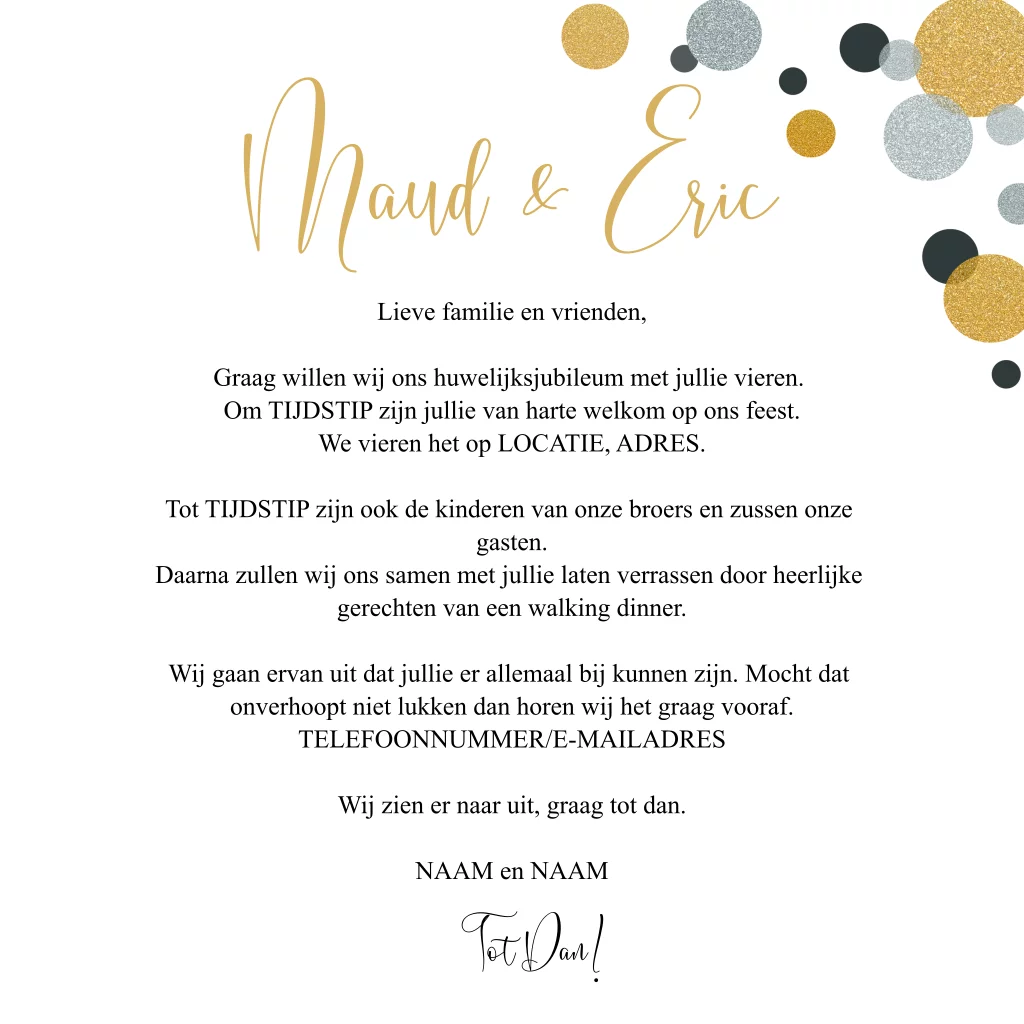 Maud & Eric
Lieve familie en vrienden,
Graag willen wij ons huwelijksjubileum met jullie vieren.
Om TIJDSTIP zijn jullie van harte welkom op ons feest.
We vieren het op LOCATIE, ADRES.
Tot TIJDSTIP zijn ook de kinderen van onze broers en zussen onze
gasten.
Daarna zullen wij ons samen met jullie laten verrassen door heerlijke
gerechten van een walking dinner.
Wij gaan ervan uit dat jullie er allemaal bij kunnen zijn. Mocht dat
onverhoopt niet lukken dan horen wij het graag vooraf.
TELEFOONNUMMER/E-MAILADRES
Wij zien er naar uit, graag tot dan.
NAAM en NAAM
Tot Dan!